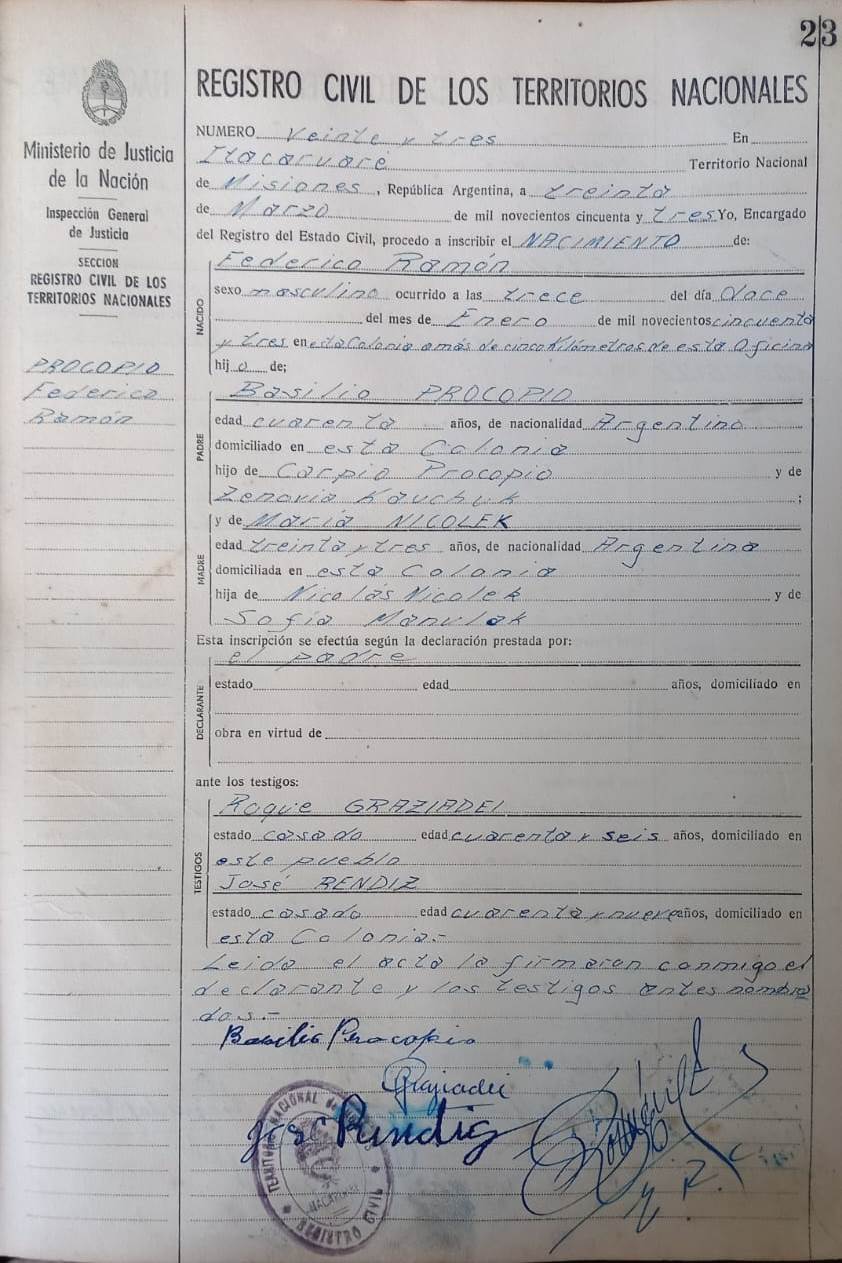 23
REGISTRO CIVIL DE LOS TERRITORIOS NACIONALES
Ministerio de Justicia
de la Nación
Inspección General
de Justicia
SECCION
REGISTRO CIVIL DE LOS
TERRITORIOS NACIONALES
PROCOPIO
Federico
Ramón
NUMERO Veinte y tres En
Itacaruaré Territorio Nacional
de Misiones, República Argentina, a treinta
de Marzo de mil novecientos cincuenta y tres Yo, Encargado
del Registro del Estado Civil, procedo a inscribir el NACIMIENTO de:
NACIDO
Federico Ramón
sexo masculino ocurrido a las trece del día doce
del mes de Enero de mil novecientos cincuenta
y tres en esta Colonia a más de cinco Kilómetros de esta Oficina
hij o de;
PADRE
Basilio PROCOPIO
edad cuarenta años, de nacionalidad Argentino
domiciliado en esta Colonia
hijo de Carpio Procopio y de
Zenovia Kauchuk ;
MADRE
y de María NICOLEK
edad treinta y tres años, de nacionalidad Argentina
domiciliada en esta Colonia
hija de Nicolás Nicolek y de
Sofía Manulak
Esta inscripción se efectúa según la declaración prestada por:
DECLARANTE
el padre
estado edad años, domiciliado en
obra en virtud de
ante los testigos:
TESTIGOS
Roque GRAZIADEI
estado casado edad cuarenta y seis años, domiciliado en
este pueblo
José RENDIZ
estado casado edad cuarenta y nueve años, domiciliado en
esta Colonia.-
Leida el acta la firmaron conmigo el
declarante y los testigos antes nombra
dos.-
Basilio Procopio
Graziadei
José Rendiz
TERRITORIO NACIONAL de
REGISTRO CIVIL